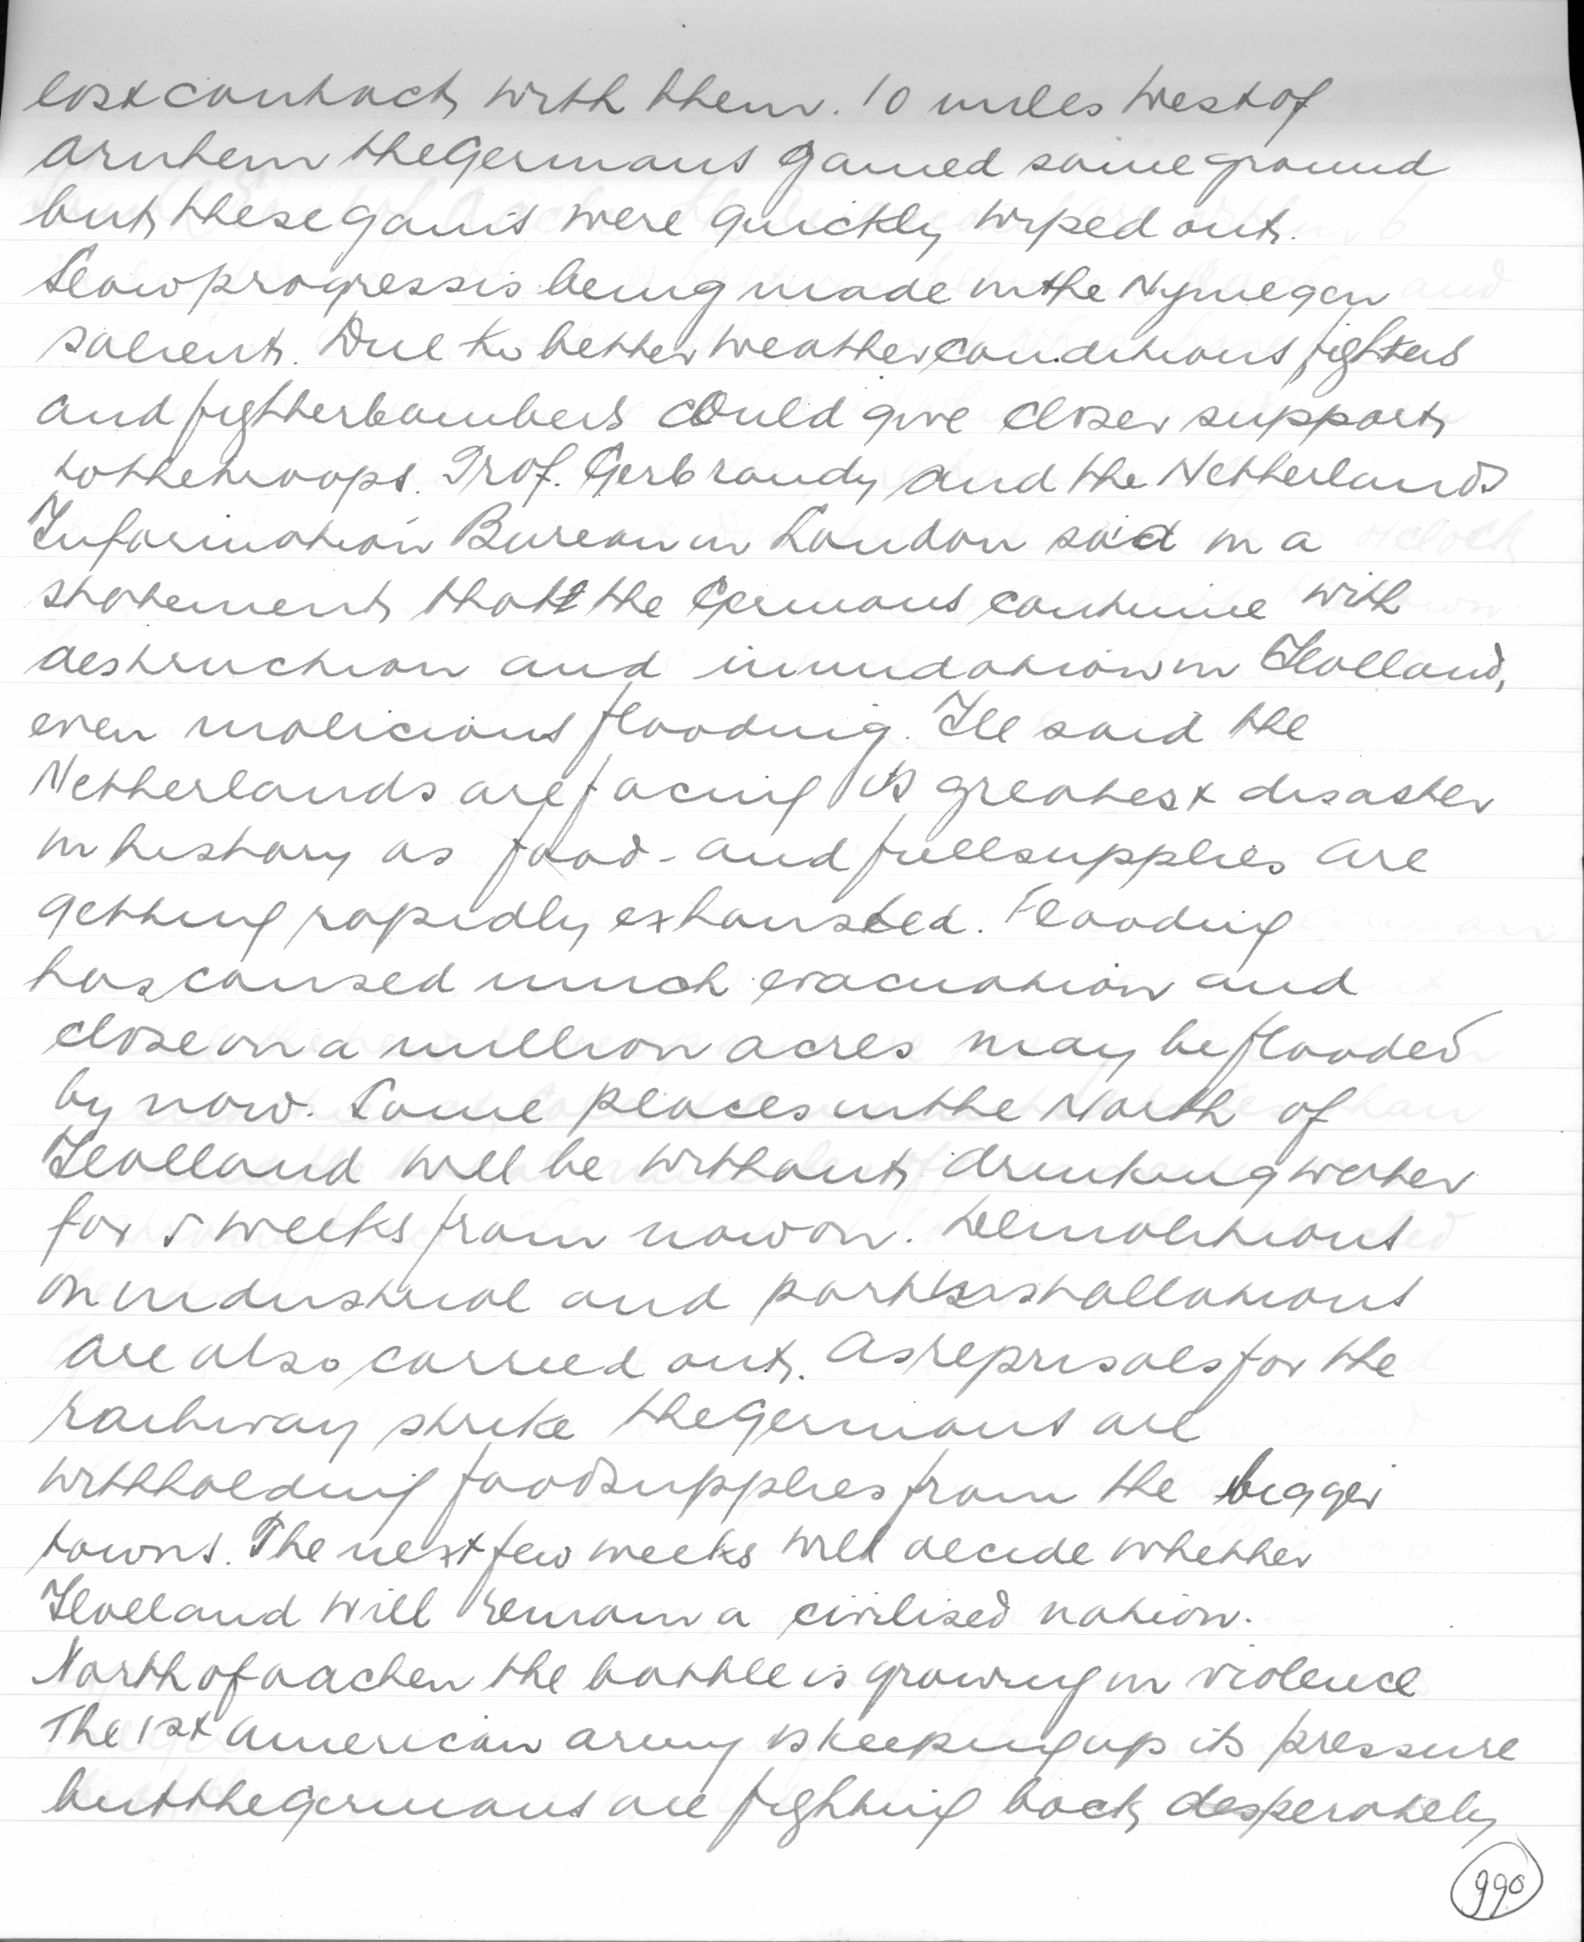 lost contact with them. 10 miles west of
Arnhem the Germans gained some ground
but these gains were quickly wiped out.
Slow progress is being made in the Nymegen
salient. Due to better weather conditions fighters
and fighterbombers could give closer support
to the troops. Prof. Gerbrandy and the Netherlands
Information Bureau in London said in a
statement that the Germans continue with
destruction and inundation in Holland,
even malicious flooding. He said the
Netherlands are facing its greatest disaster
in history as food- and fuelsupplies are
getting rapidly exhausted. Flooding
has caused much evacuation and
close on a million acres may be flooded
by now. Some places in the North of
Holland will be without drinking water
for 5 weeks from now on. Demolitions
on industrial and port installations
are also carried out. As reprisals for the
railway strike the Germans are
withholding foodsupplies from the bigger
towns. The next few weeks will decide whether
Holland will remain a civilised nation.
North of Aachen the battle is growing in violence
The 1st American army is keeping up its pressure
but the Germans are fighting back desperately
990